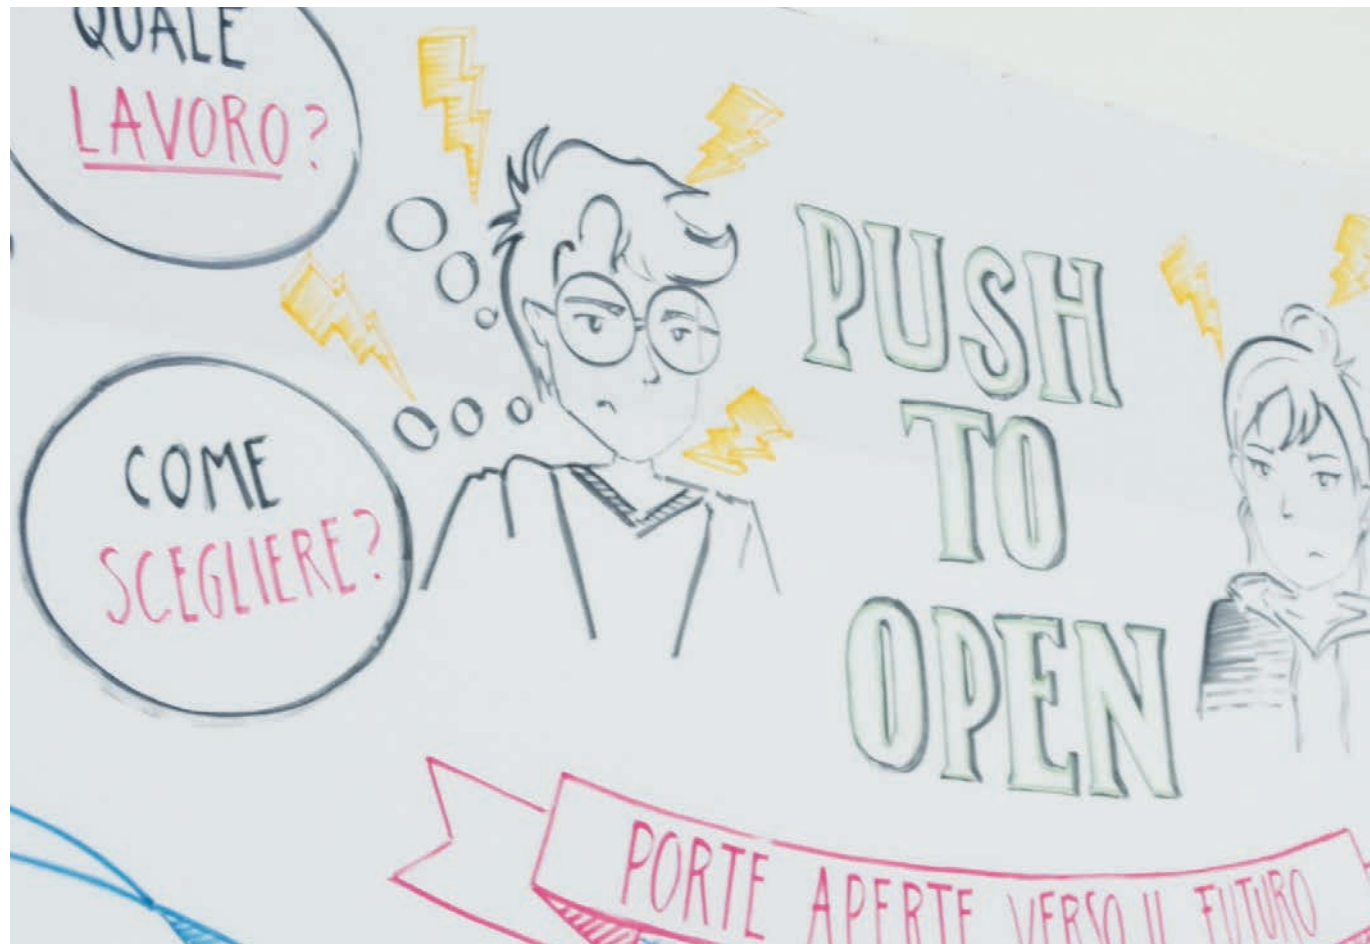 QUALE
LAVORO?
COME
SCEGLIERE?
PUSH
TO
OPEN
PORTE APERTE VERSO IL FUTURO